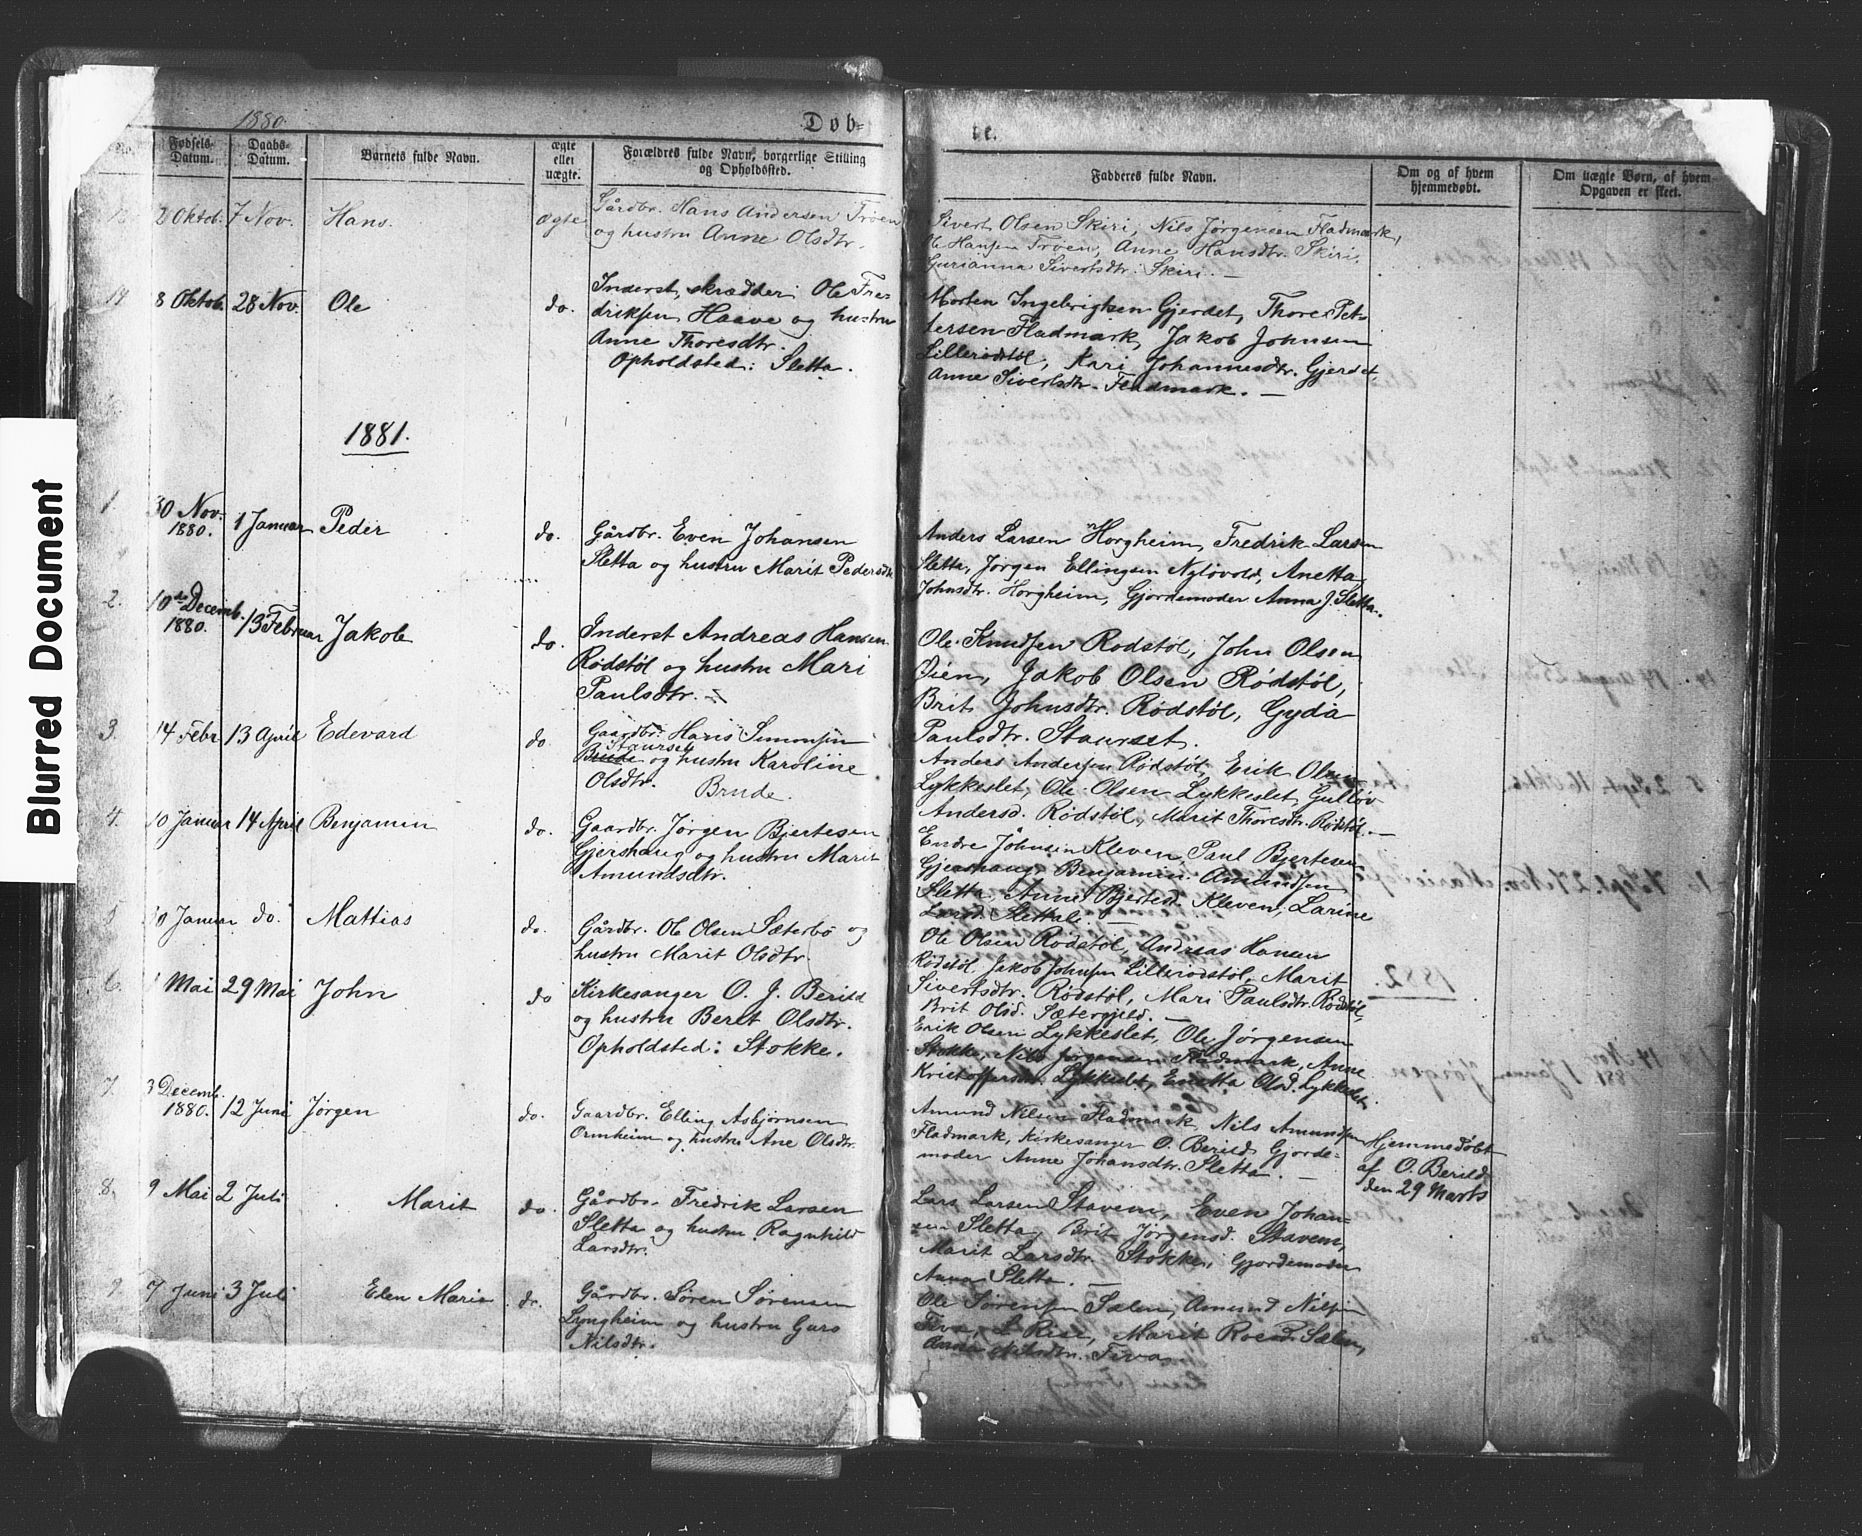 1880.
Døb-
te.
No.
Fødsels-
Datum.
Daabs-
Datum.
Barnets fulde Navn.
ægte
eller
uægte.
Forældres fulde Navn, borgerlige Stilling
og Opholdssted.
Faddernes fulde Navn.
Om og af hvem
hjemmedøbt.
Om uægte Børn, af hvem
Opgaven er skeet.
2 Oktob. 7 Nov. Hans. ægte
Gårdbr. Hans Andersen Troen
og hustru Anne Olsdtr.
Sivert Olsen Skiri, Nils Jørgensen Fladmark,
Ole Hansen Troen, Anne Hansdtr. Skiri,
Gurianna Sivertsdtr. Skiri. —
14 8 Oktob. 28 Nov. Ole do.
Inderst, skrædder Ole Fre-
driksen Haave og hustru
Anne Thoresdtr.
Opholdsted: Sletta.
Morten Ingebrigtsen Gjerdet, Thore Pet-
tersen Fladmark, Jakob Johnsen
Lillerødstøl, Kari Johannesdtr. Gjerdet,
Anne Sivertsdtr. Fladmark. —
1881.
1. 30 Nov. 1880. 1 Januar Peder do.
Gårdbr. Even Johansen
Sletta og hustru Marit Pedersdtr
Anders Larsen Horgheim, Fredrik Larsen
Sletta, Jørgen Ellingsen Nyløvold, Anetta
Johnsdtr. Horgheim, Gjordemoder Anna J. Sletta.
2. 10de Decemb. 1880. 13 Februar Jakob do.
Inderst Andreas Hansen
Rødstøl og hustru Mari
Paulsdtr. —
Ole Knudsen Rødstøl, John Olsen
Øien, Jakob Olsen Rødstøl,
Brit Johnsdtr. Rødstøl, Gyda
Paulsdtr. Staurset.
3. 14 Febr. 13 April Edevard do
Gaardbr. Hans Simonsen
Staurset
Brude og hustru Karoline
Olsdtr. Brude.
Anders Andersen Rødstøl, Erik Olsen
Lykkeslet, Ole Olsen Lykkeslet, Gulløv
Andersd. Rødstøl, Marit Thoresdtr. Rødstøl. —
4. 10 Januar 14 April Benjamin do.
Gaardbr. Jørgen Bjertesen
Gjershaug og hustru Marit
Amundsdtr.
Endre Johnsen Kleven, Paul Bjertesen
Gjershaug, Benjamin Amundsen
Sletta, Anne Bjertesd. Kleven, Larine
Larsd. Slettali. —
5 10 Januar do. Mattias do.
Gårdbr. Ole Olsen Sæterbø og
hustru Marit Olsdtr
Ole Olsen Rødstøl, Andreas Hansen
Rødstøl, Jakob Johnsen Lillerødstøl, Marit
Sivertsdtr. Rødstøl, Mari Paulsdtr. Rødstøl,
Brit Olsd. Sætergjeld. —
6. 1 Mai 29 Mai John do
Kirkesanger O. J. Berild
og hustru Beret Olsdtr.
Opholdsted: Stokke.
Erik Olsen Lykkeslet, Ole Jørgensen
Stokke, Nils Jørgensen Fladmark, Anne
Kristoffersdtr. Lykkeslet, Enetta Olsd. Lykkeslet
7. 3 Decemb. 1880. 12 Juni Jørgen do.
Gaardbr. Elling Asbjørnsen
Ormheim og hustru Ane Olsdtr.
Amund Nilsen Fladmark, Nils Amundsen
Fladmark, Kirkesanger O. Berild, Gjorde-
moder Anne Johansdtr. Sletta. —
Hjemmedøbt
af O. Berild
den 29 Marts
8. 9 Mai 2 Juli Marit do.
Gårdbr. Fredrik Larsen
Sletta og hustru Ragnhild
Larsdtr.
Lars Larsen Stavem, Even Johan-
sen Sletta, Brit Jørgensd. Stavem,
Marit Larsdtr. Stokke, Gjordemoder
Anna Sletta. —
9 7 Juni 3 Juli Elen Marie do.
Gårdbr. Søren Sørensen
Lyngheim og hustru Guro
Nilsdtr.
Ole Sørensen Sælen, Amund Nilsen
Tiva, L. Rise, Marit Roesd. Sælen,
Anne Nilsdtr. Tiva.
1882.
Blurred Document